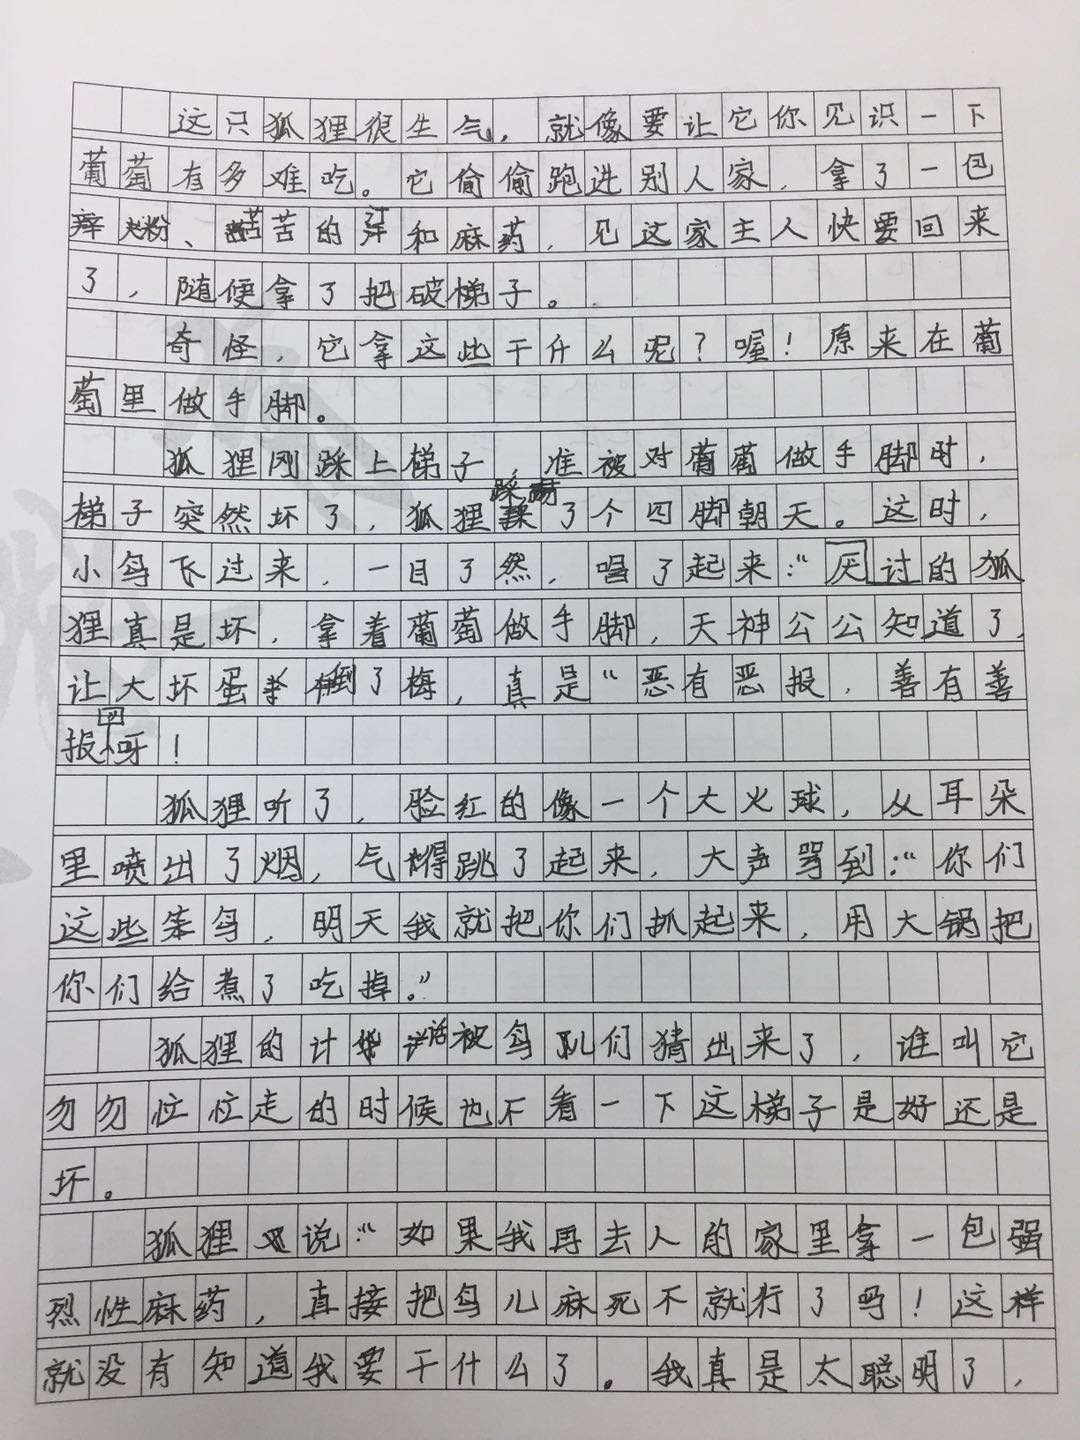 这只狐狸很生气，就像要让它你见识一下
葡萄有多难吃。它偷偷跑进别人家，拿了一包
辣粉、苦苦的洋和麻药，见这家主人快要回来
了，随便拿了把破梯子。
奇怪，它拿这些干什么呢？喔！原来在葡
萄里做手脚。
狐狸刚踩上梯子，准被对葡萄做手脚时，
梯子突然坏了，狐狸踩踢了个四脚朝天。这时，
小鸟飞过来，一目了然，唱了起来：“厌讨的狐
狸真是坏，拿着葡萄做手脚，天神公公知道了，
让大坏蛋倒了梅，真是“恶有恶报，善有善
报”呀！
狐狸听了，脸红的像一个大火球，从耳朵
里喷出了烟，气得跳了起来，大声骂到：“你们
这些笨鸟，明天我就把你们抓起来，用大锅把
你们给煮了吃掉。”
狐狸的计话被鸟儿们猜出来了，谁叫它
匆匆忙忙走的时候也不看一下这梯子是好还是
坏。
狐狸又说：“如果我再去人的家里拿一包强
烈性麻药，真接把鸟儿麻死不就行了吗！这样
就没有知道我要干什么了。我真是太聪明了，